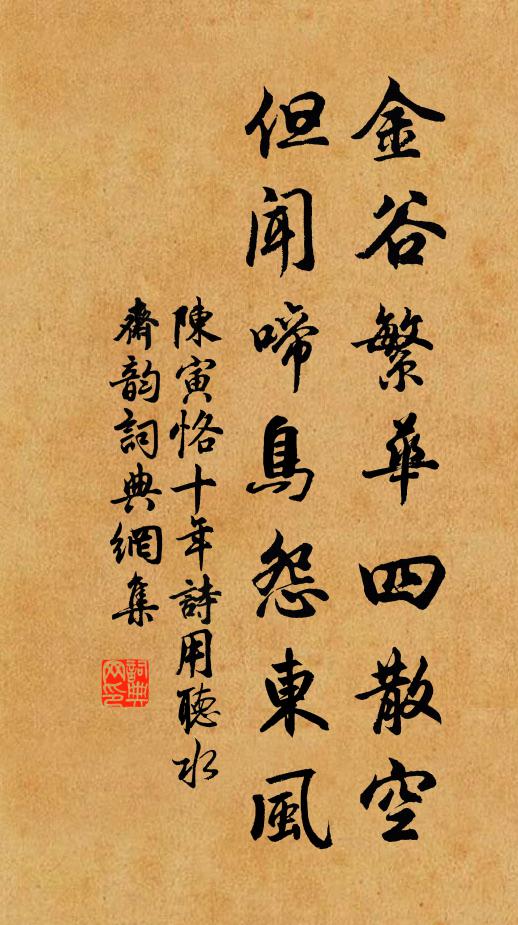 金谷繁華四散空
但聞啼鳥怨東風
陳寅恪十年詩用聽水
齋韵詞典網集
詞典网印